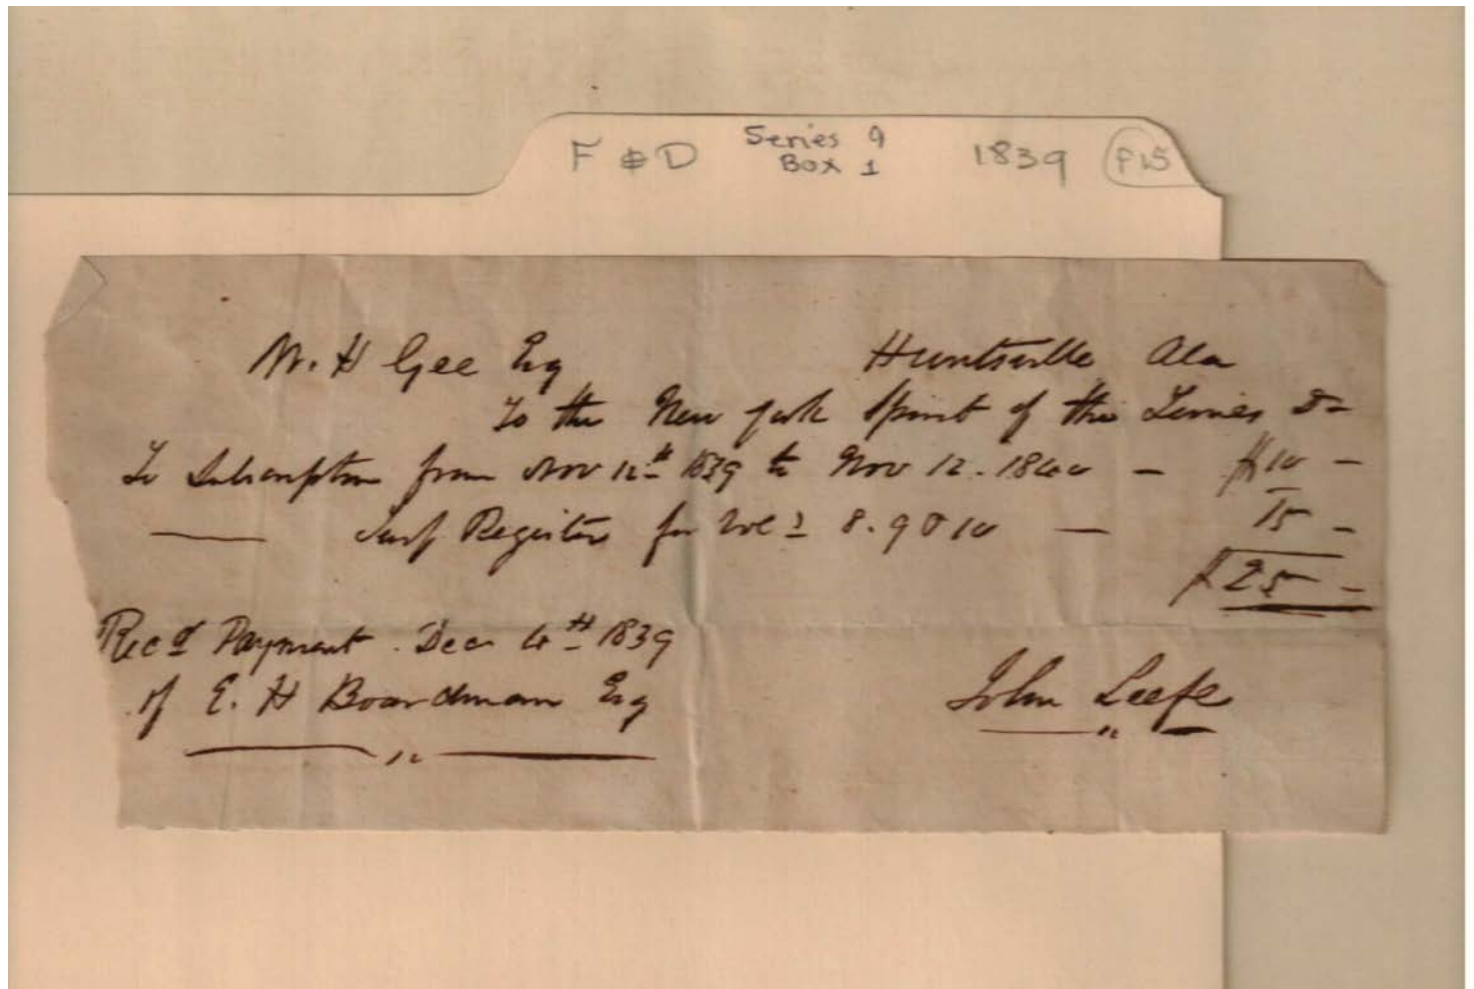 F & D Series 9 1839 P15
Box 1
W. H Gee Esq Huntsville Ala
To the New York Spirit of the Times Dr
To Subscription from Nov 12th 1839 to Nov 12. 1840 — $10 —
— Turf Register for Vols 8. 9 & 10 — 15 —
$25 —
Recd Payment. Dec 4th 1839
of E. H Boardman Esq John Leefe